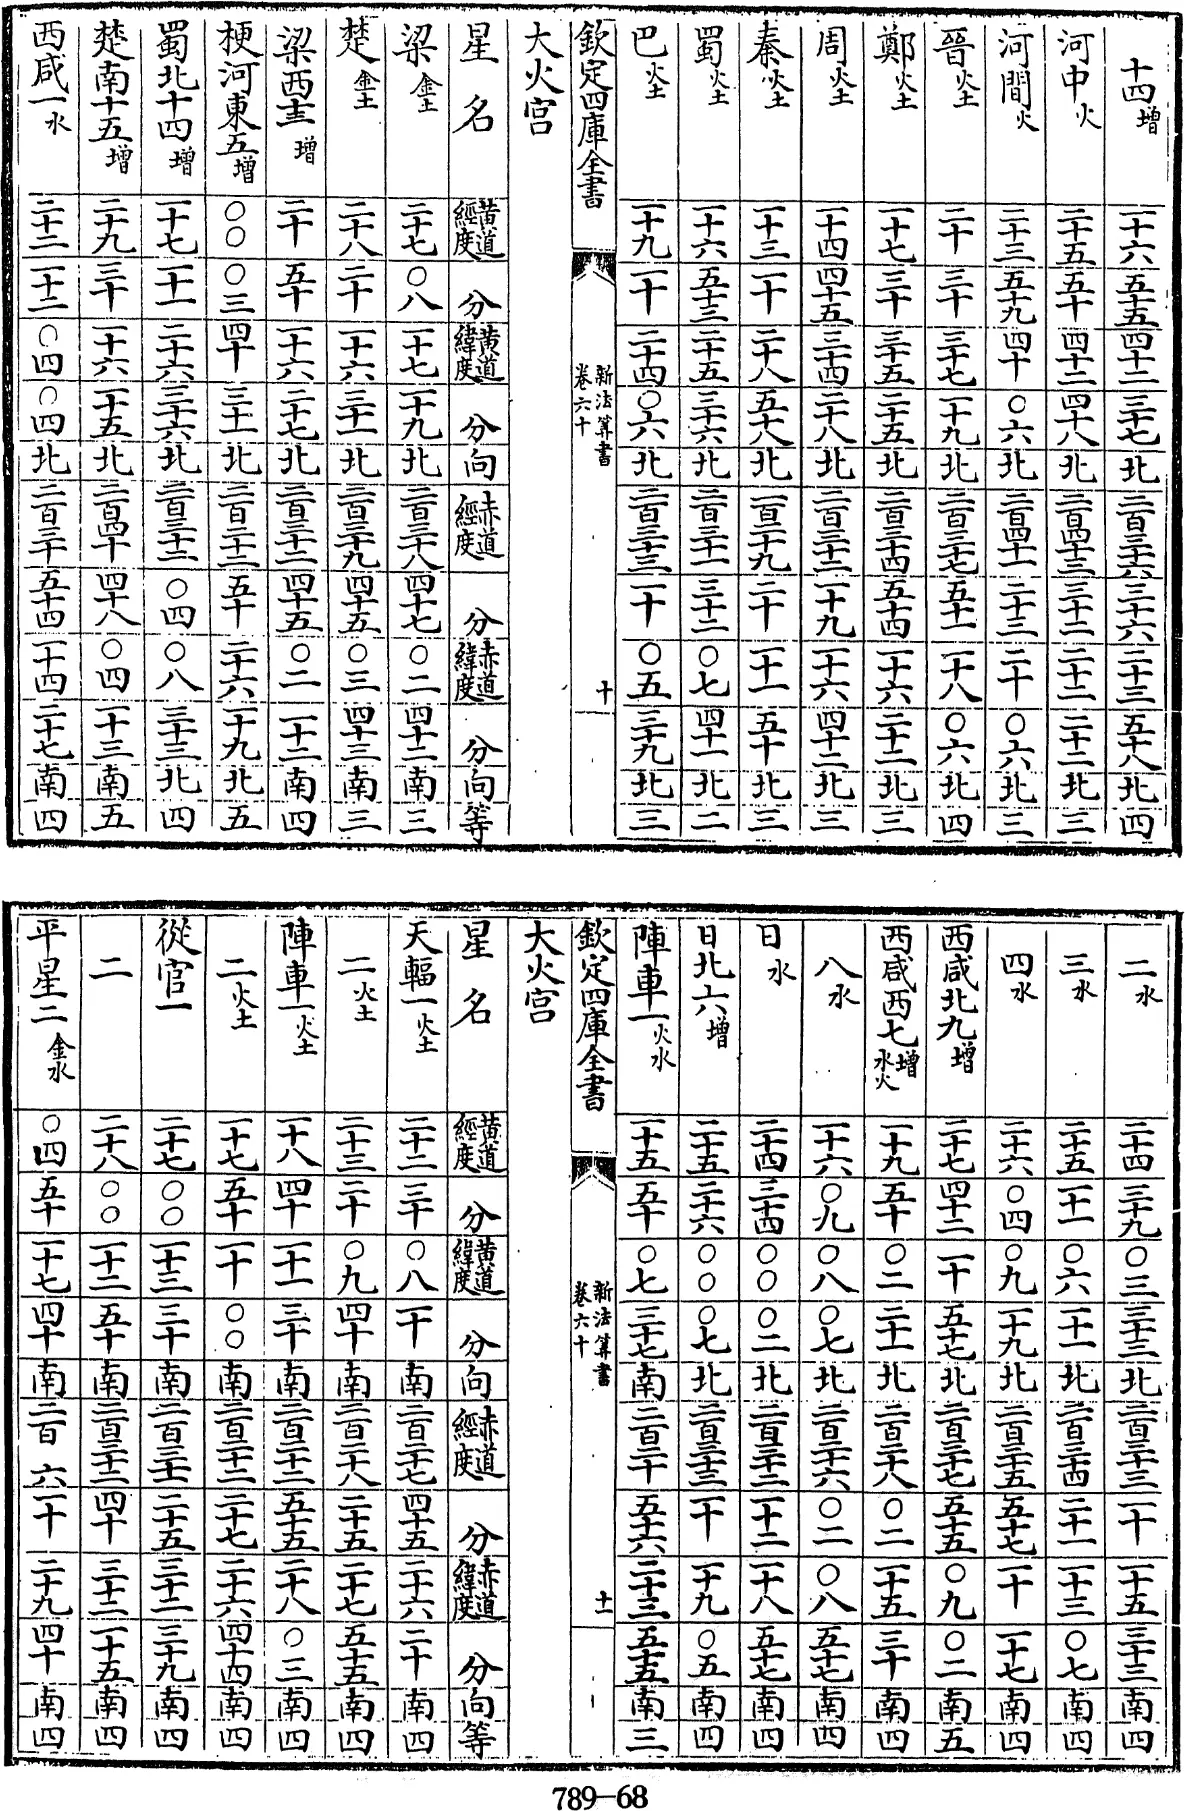 十四增 一十六 五十五 四十二 三十七 北 二百三十六 三十六 二十三 五十八 北 四
河中火 二十五 五十 四十二 四十八 北 二百四十三 三十二 二十二 二十二 北 三
河間火 二十三 五十九 四十 〇六 北 二百四十一 二十三 二十 〇六 北 三
晉火土 二十 三十 三十七 一十九 北 二百三十七 五十一 一十八 〇六 北 四
鄭火土 一十七 三十 三十五 二十五 北 二百三十四 五十四 一十六 二十二 北 三
周火土 一十四 四十五 三十四 二十八 北 二百三十二 一十九 一十六 四十二 北 三
秦火土 一十三 一十 二十八 五十八 北 二百二十九 二十 一十一 五十 北 三
蜀火土 一十六 五十三 二十五 三十六 北 二百三十一 三十二 〇七 四十一 北 二
巴火土 一十九 一十 二十四 〇六 北 二百三十三 一十 〇五 三十九 北 三
欽定四庫全書 新法算書 卷六十 十
大火宮
星名 黃道經度 分 黃道緯度 分 向 赤道經度 分 赤道緯度 分 向 等
梁金土 二十七 〇八 一十七 一十九 北 二百三十八 四十七 〇二 四十二 南 三
楚金土 二十八 二十 一十六 三十一 北 二百三十九 四十五 〇三 四十三 南 三
梁西十三增 二十 五十 一十六 二十七 北 二百三十二 四十五 〇二 一十二 南 四
梗河東五增 〇〇 〇三 四十 三十一 北 二百二十二 五十 二十六 一十九 北 五
蜀北十四增 一十七 一十一 二十六 三十六 北 二百三十二 〇四 〇八 三十三 北 四
楚南十五增 二十九 三十 一十六 一十五 北 二百四十 四十八 〇四 一十三 南 五
西咸一水 二十二 一十二 〇四 〇四 北 二百三十 五十四 一十四 二十七 南 四
二水 二十四 三十九 〇三 三十三 北 二百三十三 一十 一十五 三十三 南 四
三水 二十五 二十一 〇六 一十一 北 二百三十四 二十一 一十三 〇七 南 四
四水 二十六 〇四 〇九 一十九 北 二百三十五 五十七 一十 一十七 南 四
西咸北九增 二十七 四十二 一十 五十七 北 二百三十七 五十五 〇九 〇二 南 五
西咸西七增水火 一十九 五十 〇二 二十一 北 二百二十八 〇二 一十五 三十 南 四
八水 一十六 〇九 〇八 〇七 北 二百二十六 〇二 〇八 五十七 南 四
日水 二十四 三十四 〇〇 〇二 北 二百三十二 一十二 一十八 五十七 南 四
日北六增 二十五 二十六 〇〇 〇七 北 二百三十三 一十 一十九 〇五 南 四
陣車一火水 一十五 五十 〇七 三十七 南 二百二十 五十六 二十三 五十五 南 三
欽定四庫全書 新法算書 卷六十 十一
大火宮
星名 黃道經度 分 黃道緯度 分 向 赤道經度 分 赤道緯度 分 向 等
天輻一火土 二十二 三十 〇八 一十 南 二百二十七 四十五 二十六 二十 南 四
二火土 二十三 二十 〇九 四十 南 二百二十八 二十五 二十七 五十五 南 四
陣車一火土 一十八 四十 一十一 三十 南 二百二十二 五十五 二十八 〇三 南 四
二火土 一十七 五十 一十 〇〇 南 二百二十二 二十七 二十六 四十四 南 四
從官一 二十七 〇〇 一十三 三十 南 二百三十一 二十五 三十二 三十九 南 四
二 二十八 〇〇 一十二 五十 南 二百三十二 四十 三十二 一十五 南 四
平星二金水 〇四 五十 一十七 四十 南 二百六 一十 二十九 四十 南 四
789—68